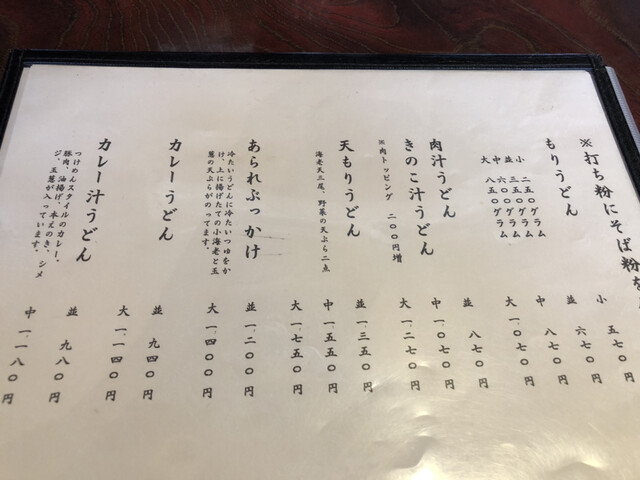 ※打ち粉にそば粉を
もりうどん
小 二五〇グラム
並 三五〇グラム
中 六〇〇グラム
大 八五〇グラム
小 五七〇円
並 六七〇円
中 八七〇円
大 一、〇七〇円
肉汁うどん
きのこ汁うどん
※肉トッピング 二〇〇円増
並 八七〇円
中 一、〇七〇円
大 一、二七〇円
天もりうどん
海老天二尾、野菜の天ぷら二点
並 一、三五〇円
中 一、五五〇円
大 一、七五〇円
あられぶっかけ
冷たいうどんに冷たいつゆをか
け、上に揚げたての小海老と玉
葱の天ぷらがのってます。
並 一、二〇〇円
大 一、四〇〇円
カレーうどん
並 九四〇円
大 一、一四〇円
カレー汁うどん
つけめんスタイルのカレー。
豚肉、油揚げ、本えのき、シメ
ジ、玉葱が入っています。
並 九八〇円
中 一、一八〇円